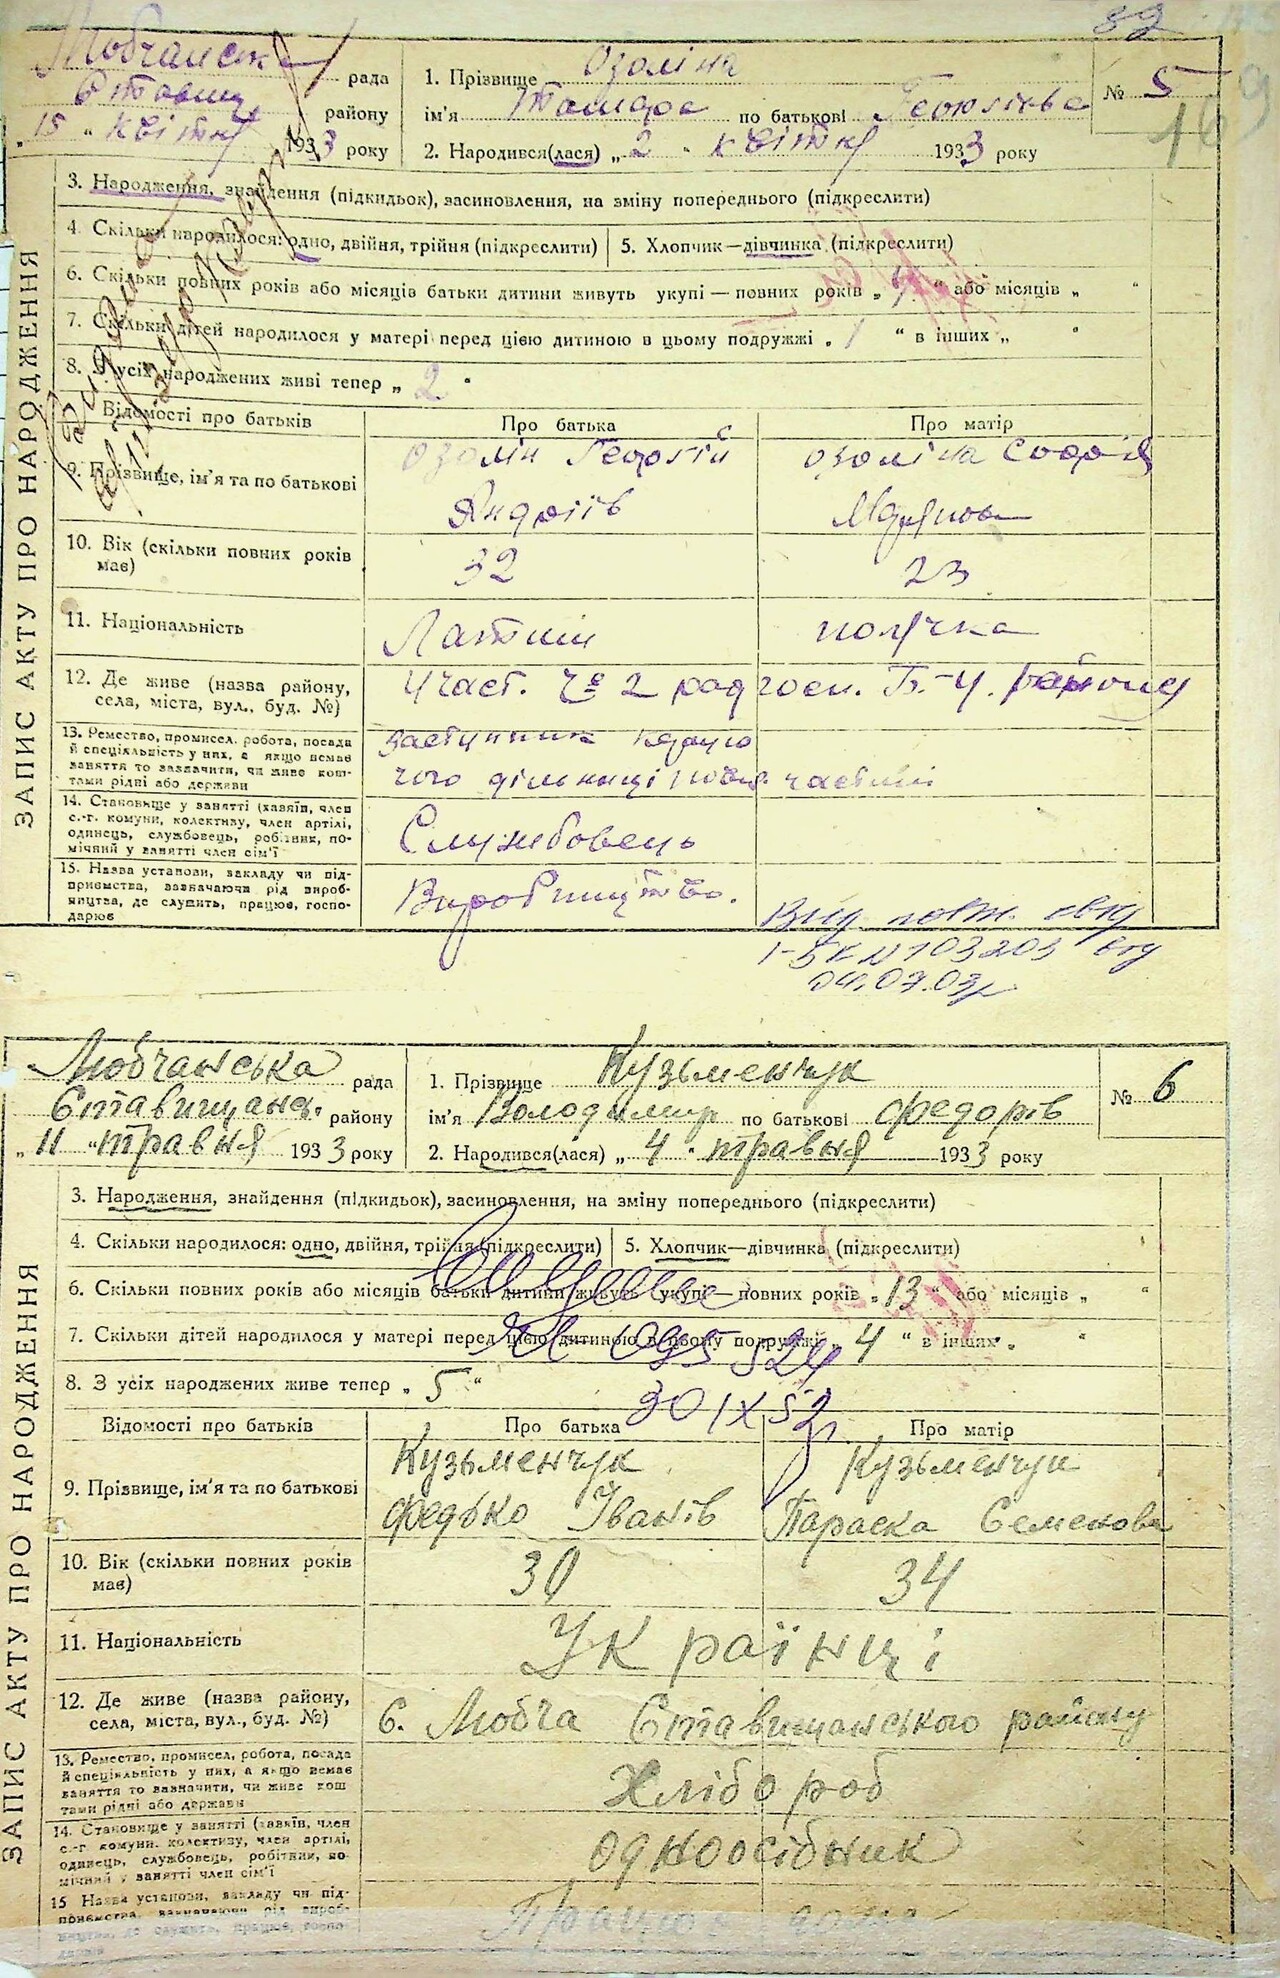 82
169
Любчанська рада
Ставищ. району
„ 15 " квітня 1933 року
1. Прізвище Озоліна
ім'я Тамара по батькові Георгієва
2. Народився(лася) „ 2 " квітня 1933 року
№ 5
ЗАПИС АКТУ ПРО НАРОДЖЕННЯ
3. Народження, знайдення (підкидьок), засиновлення, на зміну попереднього (підкреслити)
4. Скільки народилося: одно, двійня, трійня (підкреслити)
5. Хлопчик—дівчинка (підкреслити)
6. Скільки повних років або місяців батьки дитини живуть укупі — повних років „ 4 " або місяців „ "
7. Скільки дітей народилося у матері перед цією дитиною в цьому подружжі „ 1 " в інших „ "
8. З усіх народжених живі тепер „ 2 "
Відомості про батьків
Про батька
Про матір
9. Прізвище, ім'я та по батькові
Озолін Георгій
Андріїв
Озоліна Софія
10. Вік (скільки повних років має)
32
23
11. Національність
Латиш
полячка
12. Де живе (назва району, села, міста, вул., буд. №)
Участ. № 2 радгосп. Б.-Ц. району
13. Ремество, промисел, робота, посада й спеціяльність у них, а якщо немає заняття то зазначити, чи живе коштами рідні або держави
заступник керую
чого дільниці
14. Становище у занятті (хазяїн, член с.-г. комуни, колективу, член артілі, одинець, службовець, робітник, помічний у занятті член сім'ї
Службовець
15. Назва установи, закладу чи підприємства, зазначаючи рід виробництва, де служить, працює, господарює
Виробництво.
Вид. повт. свід
І-БК № 103203 від
04.07.03р
Любчанська рада
Ставищанс. району
„ 11 " травня 1933 року
1. Прізвище Кузьменчук
ім'я Володимир по батькові Федорів
2. Народився(лася) „ 4 " травня 1933 року
№ 6
ЗАПИС АКТУ ПРО НАРОДЖЕННЯ
3. Народження, знайдення (підкидьок), засиновлення, на зміну попереднього (підкреслити)
4. Скільки народилося: одно, двійня, трійня (підкреслити)
5. Хлопчик—дівчинка (підкреслити)
6. Скільки повних років або місяців батьки дитини живуть укупі — повних років „ 13 " або місяців „ "
7. Скільки дітей народилося у матері перед цією дитиною в цьому подружжі „ 4 " в інших „ "
8. З усіх народжених живе тепер „ 5 "
30/X 52
Відомості про батьків
Про батька
Про матір
9. Прізвище, ім'я та по батькові
Кузьменчук
Федько Іванів
Кузьменчук
Параска Семенова
10. Вік (скільки повних років має)
30
34
11. Національність
Українці
12. Де живе (назва району, села, міста, вул., буд. №)
С. Любча Ставищанського району
13. Ремество, промисел, робота, посада й спеціяльність у них, а якщо немає заняття то зазначити, чи живе коштами рідні або держави
Хлібороб
14. Становище у занятті (хазяїн, член с.-г. комуни, колективу, член артілі, одинець, службовець, робітник, помічний у занятті член сім'ї
одноосібник
15 Назва установи, закладу чи підприємства, зазначаючи рід виробництва, де служить, працює, господарює